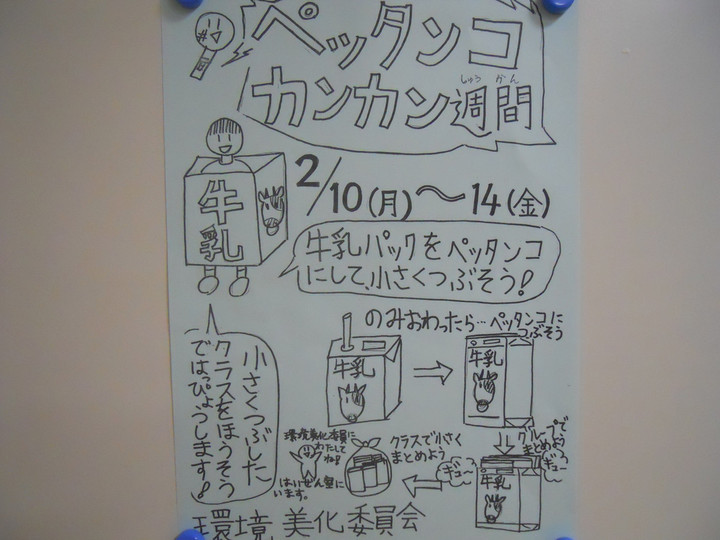 ペッタンコ
カンカン週間
しゅう かん
2/10(月)～14(金)
牛乳
牛乳パックをペッタンコ
にして小さくつぶそう!
のみおわったら…ペッタンコに
つぶそう
牛乳
牛乳
グループで
まとめよう
ギュー
ギュー
牛乳
クラスで小さく
まとめよう
環境美化委員に
わたして
ね!
はいぜん室に
います。
小さくつぶした
クラスをほうそう
ではっぴょうします!
環境美化委員会